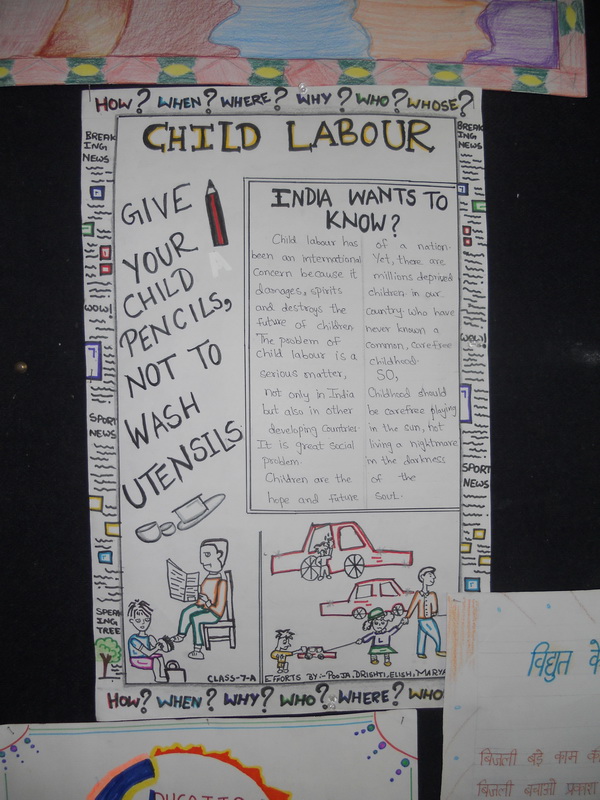 HOW? WHEN? WHERE? WHY? WHO? WHOSE?
CHILD LABOUR
BREAK
ING
NEWS
WOW!
SPORT
NEWS
SPEAK
ING
TREE
GIVE
YOUR
CHILD
PENCILS,
NOT TO
WASH
UTENSILS
INDIA WANTS TO
KNOW?
Child labour has
been an international
concern because it
damages, spirits
and destroys the
future of children
The problem of
child labour is a
serious matter,
not only in India
but also in other
developing countries
It is great social
problem.
Children are the
hope and future
of a nation.
Yet, there are
millions deprived
children in our
country who have
never known a
common, carefree
childhood.
SO,
Childhood should
be carefree playing
in the sun, not
living a nightmare
in the darkness
of the
soul.
BREAK
ING
NEWS
WOW!
SPORT
NEWS
CLASS-7-A
EFFORTS BY:- POOJA, DRISHTI, ELISH, MARYA
HOW? WHEN? WHY? WHO? WHERE? WHO
विद्युत के
बिजली बड़े काम की
बिजली बचाओ प्रकाश